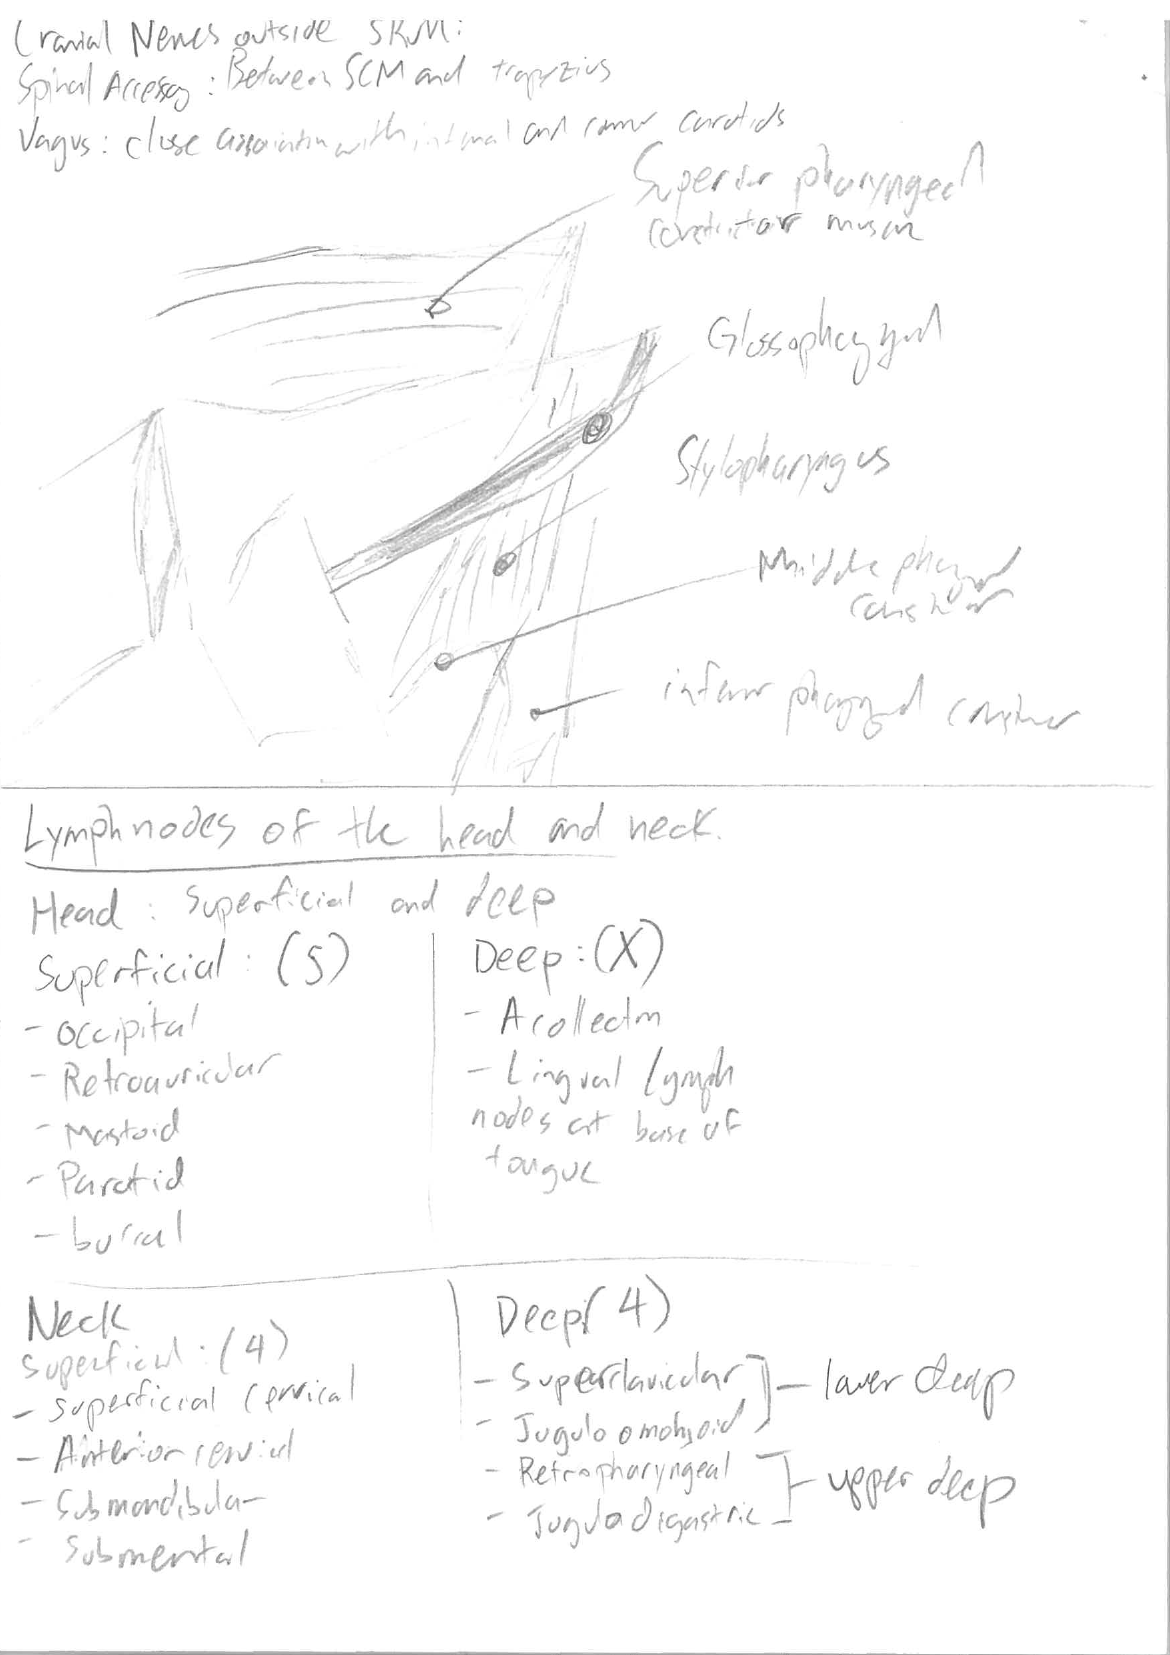 Cranial Nerves outside SKUM:
Spinal Accessoy: Between SCM and trapezius
Vagus: close association with internal and carotids
Superior pharyngeal
constrictor muscle
Glossopharyngeal
Stylopharyngus
Middle pharyngeal
constrictor
inferior pharyngeal constrictor
Lymph nodes of the head and neck.
Head: Superficial and deep
Superficial: (5)
- Occipital
- Retroauricular
- Mastoid
- Parotid
- buccal
Deep: (X)
- A collection
- Lingual lymph
nodes at base of
tongue
Neck
Superficial: (4)
- Superficial cervical
- Anterior cervical
- Submandibular
- Submental
Deep (4)
- Superclavicular
- Jugulo omohyoid
lower deep
- Retropharyngeal
- Jugulodigastric
upper deep